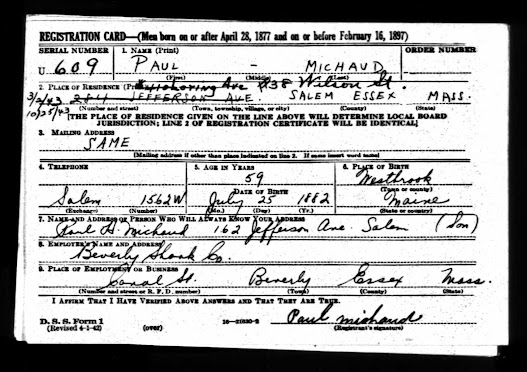 REGISTRATION CARD—(Men born on or after April 28, 1877 and on or before February 16, 1897)
SERIAL NUMBER 1. NAME (Print) ORDER NUMBER
U 609 PAUL - MICHAUD
(First) (Middle) (Last)
2. PLACE OF RESIDENCE (Print) Ave 38 Wilson St.
3/2/43 284 JEFFERSON AVE SALEM ESSEX MASS.
10/25/43 (Number and street) (Town, township, village, or city) (County) (State)
[THE PLACE OF RESIDENCE GIVEN ON THE LINE ABOVE WILL DETERMINE LOCAL BOARD
JURISDICTION; LINE 2 OF REGISTRATION CERTIFICATE WILL BE IDENTICAL]
3. MAILING ADDRESS
SAME
[Mailing address if other than place indicated on line 2. If same insert word same]
4. TELEPHONE 5. AGE IN YEARS 6. PLACE OF BIRTH
59 Westbrook
DATE OF BIRTH (Town or county)
Salem 1562W July 25 1882 Maine
(Exchange) (Number) (Mo.) (Day) (Yr.) (State or country)
7. NAME AND ADDRESS OF PERSON WHO WILL ALWAYS KNOW YOUR ADDRESS
Paul A. Michaud 162 Jefferson Ave. Salem (Son)
8. EMPLOYER'S NAME AND ADDRESS
Beverly Shank Co.
9. PLACE OF EMPLOYMENT OR BUSINESS
Canal St. Beverly Essex Mass.
(Number and street or R. F. D. number) (Town) (County) (State)
I AFFIRM THAT I HAVE VERIFIED ABOVE ANSWERS AND THAT THEY ARE TRUE.
D. S. S. Form 1
(Revised 4-1-42) (over) 16—21630-2 Paul Michaud
(Registrant's signature)